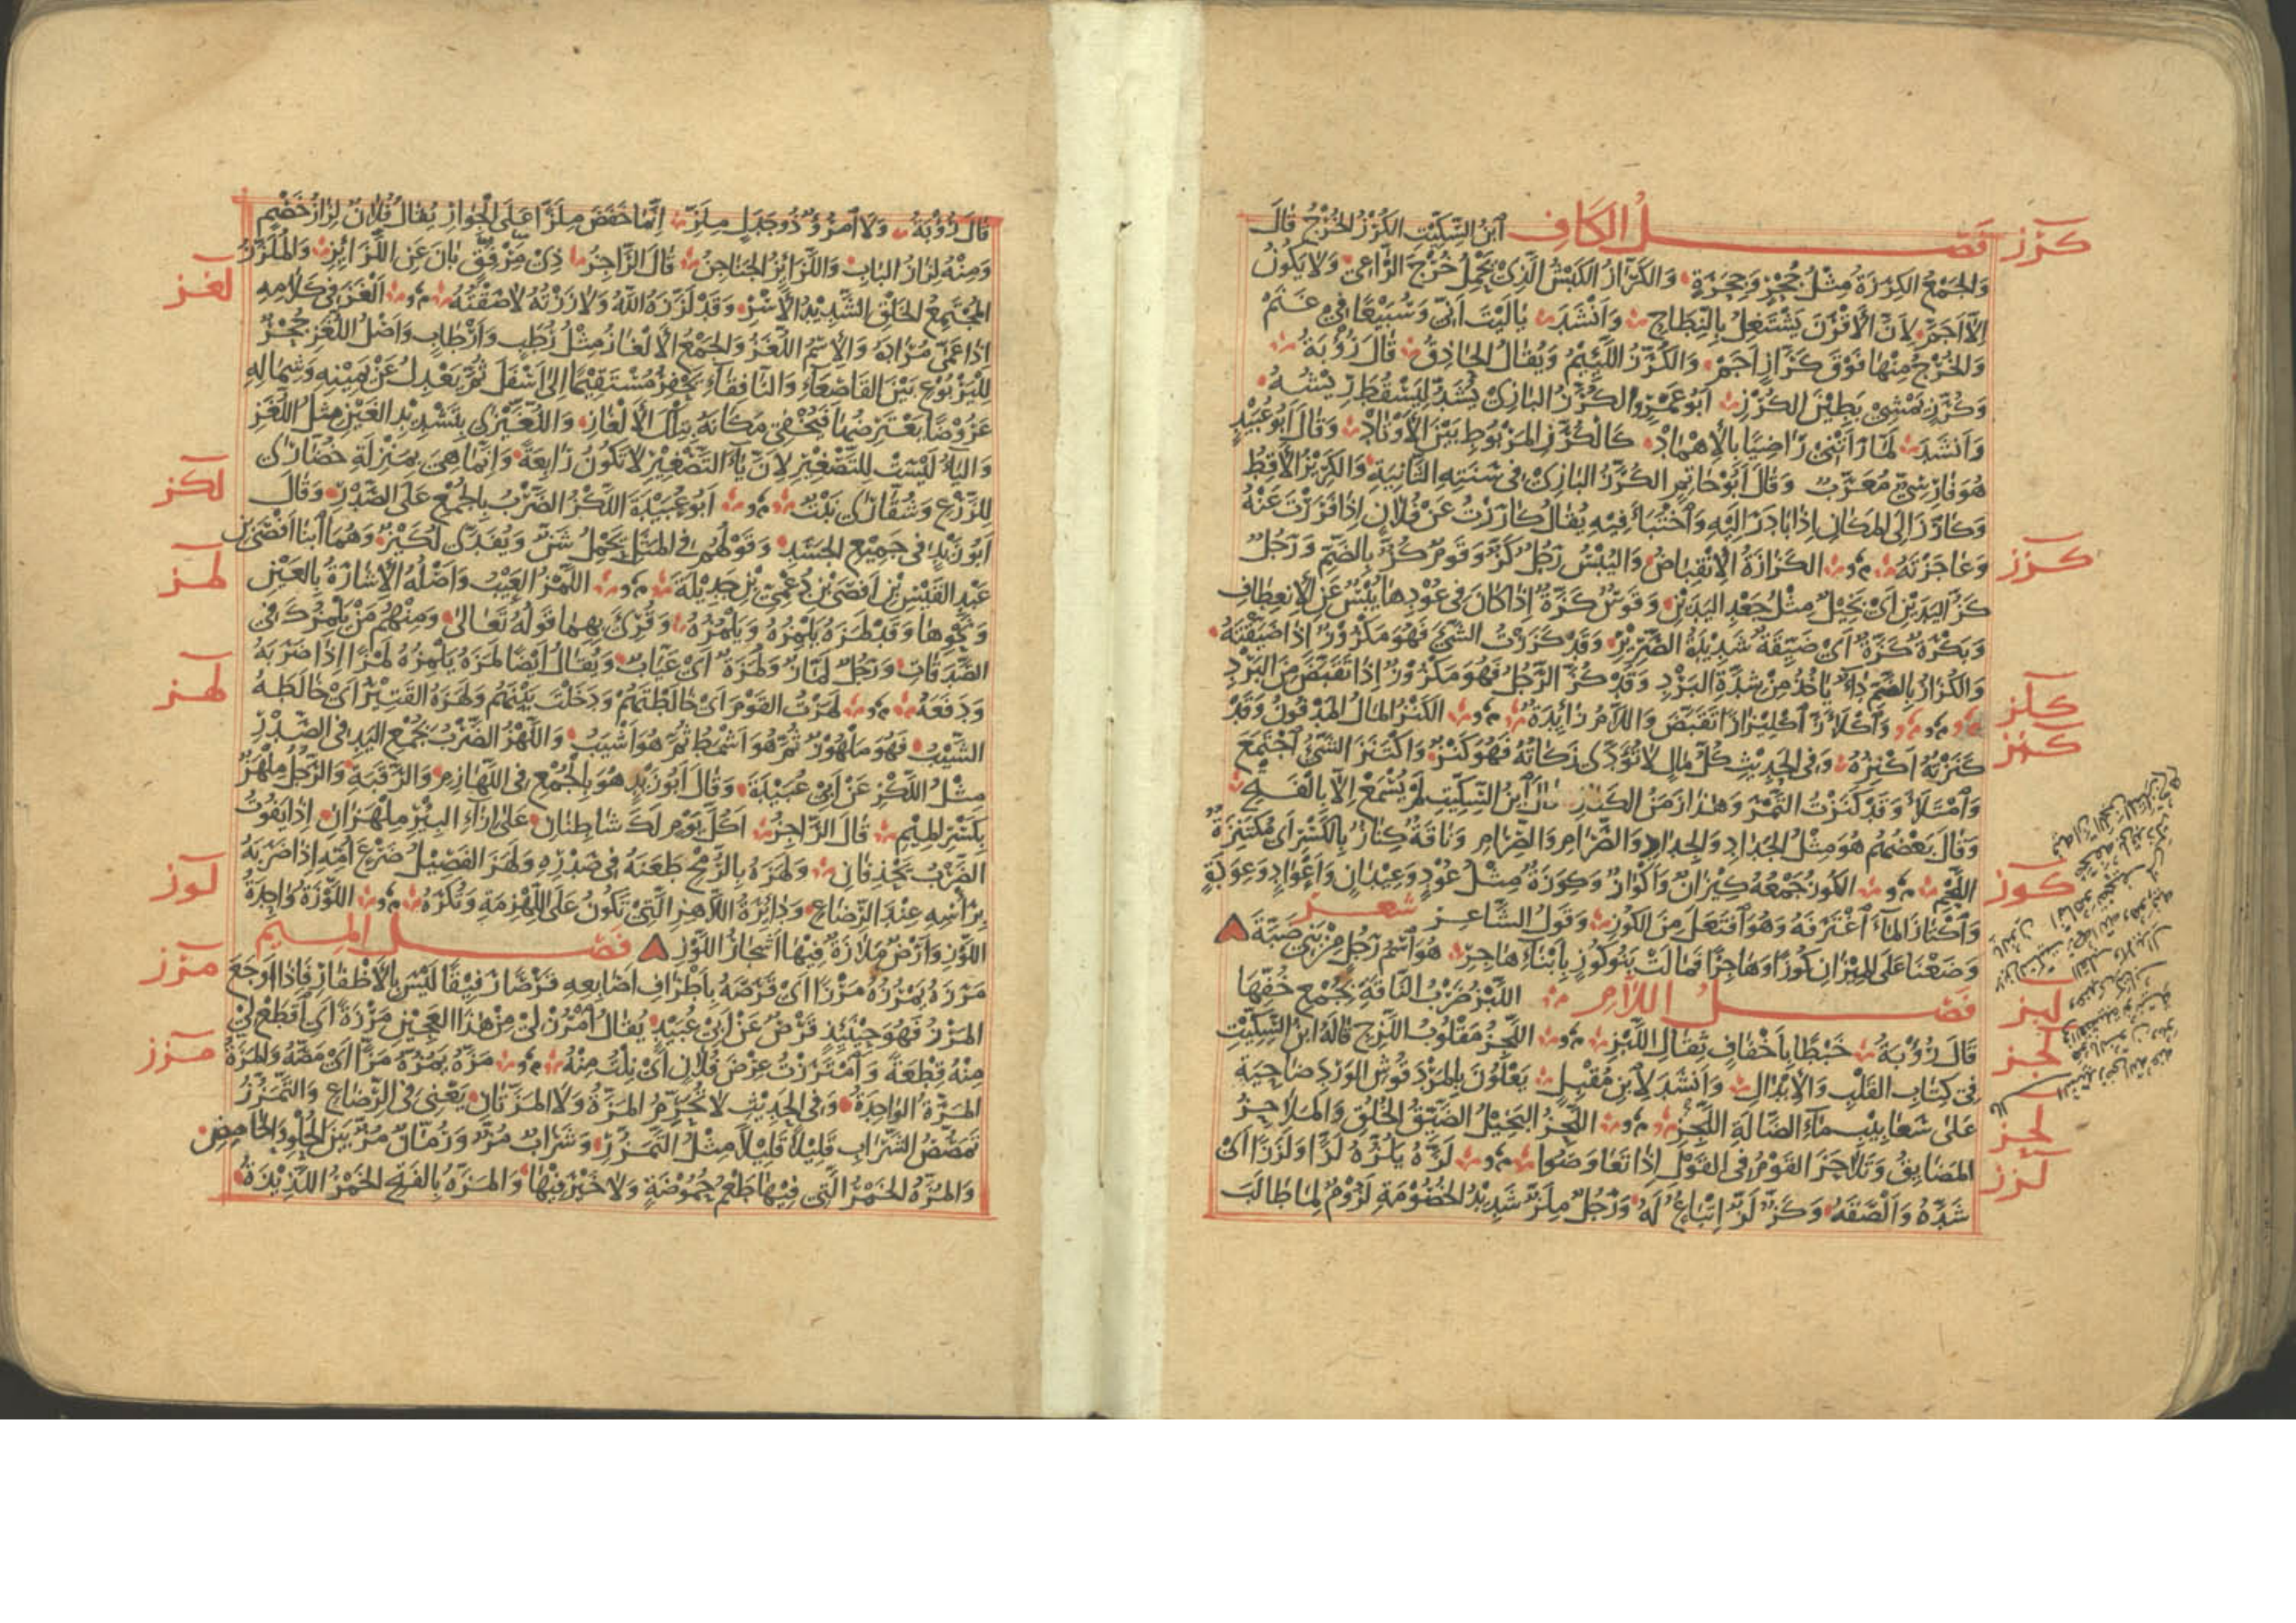 كرز
فصل الكاف ابن السكيت الكُرْزُ الخُرْجُ قال
والجمع الكِرَزَةُ مثل جُحْرٍ وجِحَرَةٍ والكَرَّازُ الكبش الذي يحمل خرج الراعي ولا يكون
إلا أجمّ لأن الأقرن يشتغل بالنطاح وأنشد يا ليت أني وسبيعا في غنم
والخرج منها فوق كراز أجم والكُرَّزُ اللئيم ويقال الحاذق قال رؤبة
وكرز يمشي بطين الكرز أبو عمرو الكرز البازي يشد ليسقط ريشه
وأنشد لما رأتني راضيا بالإهماد كالكرز المربوط بين الأوتاد وقال أبو عبيد
هو فارسي معرب وقال أبو حاتم الكرز البازي في سنته الثانية والكريز الأقط
وكارز إلى المكان إذا بادر إليه واختبأ فيه يقال كارزت عن فلان إذا فررت عنه
كزز
وعاجزته الكزازة الانقباض واليبس رجل كز وقوم كز بالضم ورجل
كز اليدين أي بخيل مثل جعد اليدين وقوس كزة إذا كان في عودها يبس عن الانعطاف
وبكرة كزة أي ضيقة شديدة الصرير وقد كززت الشيء فهو مكزوز إذا ضيقته
والكزاز بالضم داء يأخذ من شدة البرد وقد كز الرجل فهو مكزوز إذا تقبض من البرد
كلز
كنز
واكلأز اكلئزازا تقبض واللام زايدة الكنز المال المدفون وقد
كنزته أكنزه وفي الحديث كل مال لا تؤدى زكاته فهو كنز واكتنز الشيء اجتمع
وامتلأ وقد كنزت التمر وهذا زمن الكناز قال ابن السكيت لم يسمع إلا بالفتح
وقال بعضهم هو مثل الجداد والجداد والصرام والصرام وناقة كناز بالكسر أي مكتنزة
كوز
اللحم الكوز جمعه كيزان وأكواز وكوزة مثل عود وعيدان وأعواد وعودة
واكتاز الماء اغترفه وهو افتعل من الكوز وقول الشاعر شعر
وضعنا على الميزان كوزا وهاجرا فمالت بنو كوز بأبناء هاجر هو اسم رجل من بني ضبة
لبز
فصل اللام اللبز ضرب الناقة بجمع خفها
لجز
قال رؤبة خبطا بأخفاف ثقال اللبز اللجز مقلوب اللزج قاله ابن السكيت
في كتاب القلب والإبدال وأنشد لابن مقبل يعلون بالمردقوش الورد ضاحية
لحز
على سعابيب ماء الضالة اللجز اللحز البخيل الضيق الخلق والملاحز
لزز
المضايق وتلاحز القوم في القول إذا تعاوصوا لزه يلزه لزا ولززا أي
شده وألصقه وكز لز إتباع له ورجل ملز شديد الخصومة لزوم لما طالب
قال رؤبة ولا امرؤ ذو جدل ملز إنما خفض ملزا على الجوار يقال فلان لزاز خصيم
ومنه لزاز الباب واللزايز الجناجن قال الراجز ذي مرفق بان عن اللزايز والملزز
لغز
المجتمع الخلق الشديد الأسر وقد لززه الله ولاززته لاصقته ألغز في كلامه
إذا عمى مراده والاسم اللغز والجمع الألغاز مثل رطب وأرطاب وأصل اللغز جحر
لليربوع بين القاصعاء والنافقاء يحفر مستقيما إلى أسفل ثم يعدل عن يمينه وشماله
عروضا يعترضها فيخفى مكانه بتلك الألغاز واللغيزى بتشديد الغين مثل اللغز
والياء ليست للتصغير لأن ياء التصغير لا تكون رابعة وإنما هي بمنزلة خضارى
لكز
للزرع وشقارى نبت أبو عبيدة اللكز الضرب بالجمع على الصدر وقال
أبو زيد في جميع الجسد وقولهم في المثل يحمل شن ويفدى لكيز وهما ابنا أفصى بن
لمز
عبد القيس بن أفصى بن دعمي بن جديلة اللمز العيب وأصله الإشارة بالعين
ونحوها وقد لمزه يلمزه ويلمزه وقرئ بهما قوله تعالى ومنهم من يلمزك في
الصدقات ورجل لماز ولمزة أي عياب ويقال أيضا لمزه يلمزه لمزا إذا ضربه
لهز
ودفعه لهزت القوم أي خالطتهم ودخلت بينهم ولهزه القتير أي خالطه
الشيب فهو ملهوز ثم هو أشمط ثم هو أشيب واللهز الضرب بجمع اليد في الصدر
مثل اللكز عن أبي عبيدة وقال أبو زيد هو بالجمع في اللهازم والرقبة والرجل ملهز
بكسر الميم قال الراجز أكل يوم لك شاطنان على إزاء البير ملهزان إذا يفوت
الضرب يحذفان ولهزه بالرمح طعنه في صدره ولهز الفصيل ضرع أمه إذا ضربه
لوز
برأسه عند الرضاع ودائرة اللاهز التي تكون على اللهزمة وتكره اللوزة واحدة
اللوز وأرض ملازة فيها أشجار اللوز فصل الميم
مرز
مرزه يمرزه مرزا أي قرصه بأطراف أصابعه قرصا رفيقا ليس بالأظفار فإذا أوجع
المرز فهو حينئذ قرص عن أبي عبيد يقال امرز لي من هذا العجين مرزة أي اقطع لي
مزز
منه قطعة وامترزت عرض فلان أي نلت منه مزه يمزه مزا أي مصه والمزة
المرة الواحدة وفي الحديث لا تحرم المزة ولا المزتان يعني في الرضاع والتمزز
تمصص الشراب قليلا قليلا مثل التمزر وشراب مز ورمان مز بين الحلو والحامض
والمزة الخمر التي فيها طعم حموضة ولا خير فيها والمزة بالفتح الخمر اللذيذة